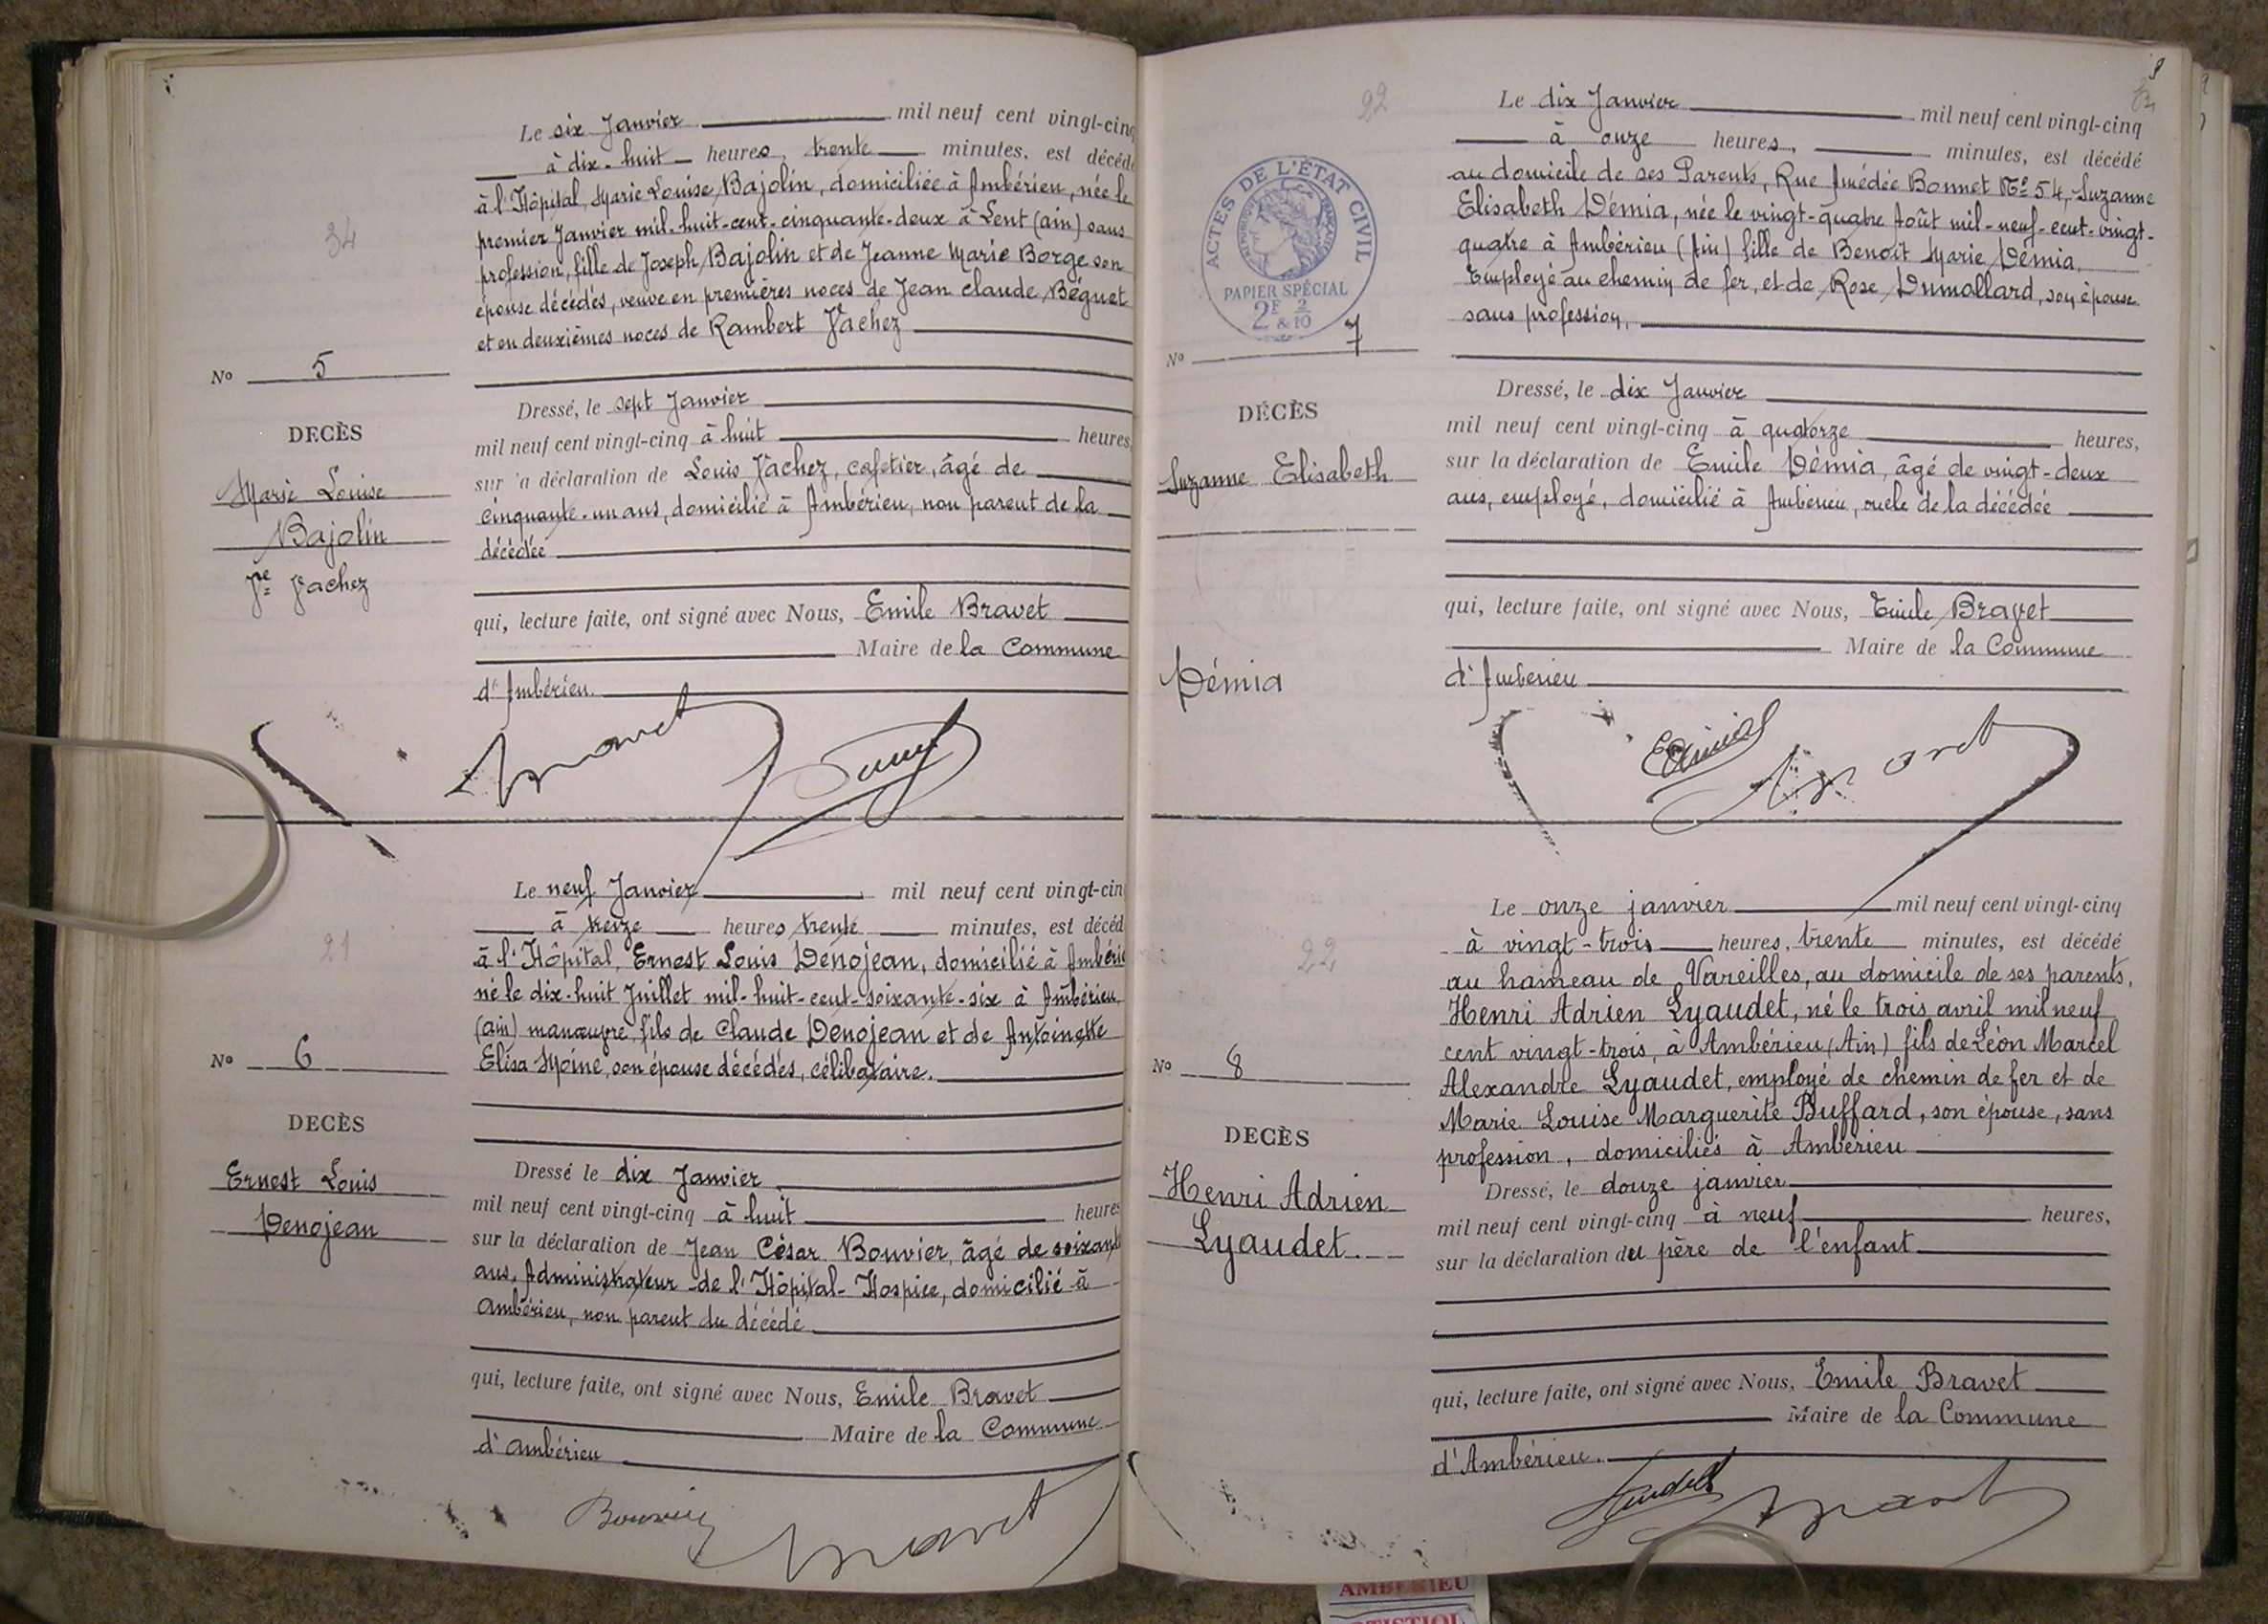 34
Le six Janvier mil neuf cent vingt-cinq
à dix-huit heures, trente minutes, est décédé
à l'Hôpital, Marie Louise Bajolin, domiciliée à Ambérieu, née le
premier Janvier mil-huit-cent-cinquante-deux à Lent (ain) sans
profession, fille de Joseph Bajolin et de Jeanne Marie Borge son
épouse décédés, veuve en premières noces de Jean Claude Béguet
et en deuxièmes noces de Rambert Vachez
No 5
DECÈS
Marie Louise
Bajolin
Vve Vachez
Dressé, le sept Janvier
mil neuf cent vingt-cinq à huit heures,
sur la déclaration de Louis Vachez, cafetier, âgé de
cinquante-un ans, domicilié à Ambérieu, non parent de la
décédée
qui, lecture faite, ont signé avec Nous, Emile Bravet
Maire de la Commune
d'Ambérieu.
Bravet
21
Le neuf Janvier mil neuf cent vingt-cin
à treize heures trente minutes, est décéd
à l'Hôpital, Ernest Louis Venojean, domicilié à Ambérie
né le dix-huit Juillet mil-huit-cent-soixante-six à Ambérieu
(ain) manœuvre, fils de Claude Venojean et de Antoinette
Elisa Moine, son épouse décédés, célibataire.
No 6
DECÈS
Ernest Louis
Venojean
Dressé le dix Janvier
mil neuf cent vingt-cinq à huit heures
sur la déclaration de Jean César Bouvier, âgé de soixante
ans, Administrateur de l'Hôpital-Hospice, domicilié à
Ambérieu, non parent du décédé
qui, lecture faite, ont signé avec Nous, Emile Bravet
Maire de la Commune
d'Ambérieu
Bouvier Bravet
9
22
Le dix Janvier mil neuf cent vingt-cinq
à onze heures, minutes, est décédé
au domicile de ses Parents, Rue Amédée Bonnet No 54, Suzanne
Elisabeth Démia, née le vingt-quatre Août mil-neuf-cent-vingt-
quatre à Ambérieu (Ain) fille de Benoit Marie Démia,
Employé au chemin de fer, et de Rose Dumollard, son épouse
sans profession,
ACTES DE L'ÉTAT CIVIL
RÉPUBLIQUE FRANÇAISE
PAPIER SPÉCIAL
2F & 2/10
No 7
DÉCÈS
Suzanne Elisabeth
Démia
Dressé, le dix Janvier
mil neuf cent vingt-cinq à quatorze heures,
sur la déclaration de Emile Démia, âgé de vingt-deux
ans, employé, domicilié à Ambérieu, oncle de la décédée
qui, lecture faite, ont signé avec Nous, Emile Bravet
Maire de la Commune
d'Ambérieu
Bravet
22
Le onze janvier mil neuf cent vingt-cinq
à vingt-trois heures, trente minutes, est décédé
au hameau de Vareilles, au domicile de ses parents,
Henri Adrien Lyaudet, né le trois avril mil neuf
cent vingt-trois, à Ambérieu (Ain) fils de Léon Marcel
Alexandre Lyaudet, employé de chemin de fer et de
Marie Louise Marguerite Buffard, son épouse, sans
profession, domiciliés à Ambérieu
No 8
DECÈS
Henri Adrien
Lyaudet.
Dressé, le douze janvier
mil neuf cent vingt-cinq à neuf heures,
sur la déclaration du père de l'enfant
qui, lecture faite, ont signé avec Nous, Emile Bravet
Maire de la Commune
d'Ambérieu.
Lyaudet Bravet
AMBERIEU